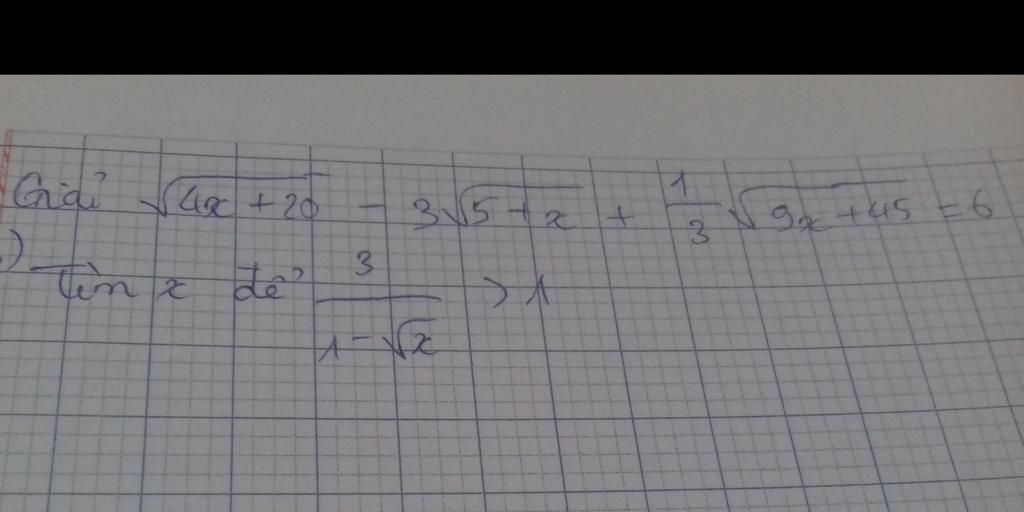 Giải √(4x+20) - 3√(5+x) + 1/3 √(9x+45) = 6
) Tìm x để 3/(1-√x) > 1